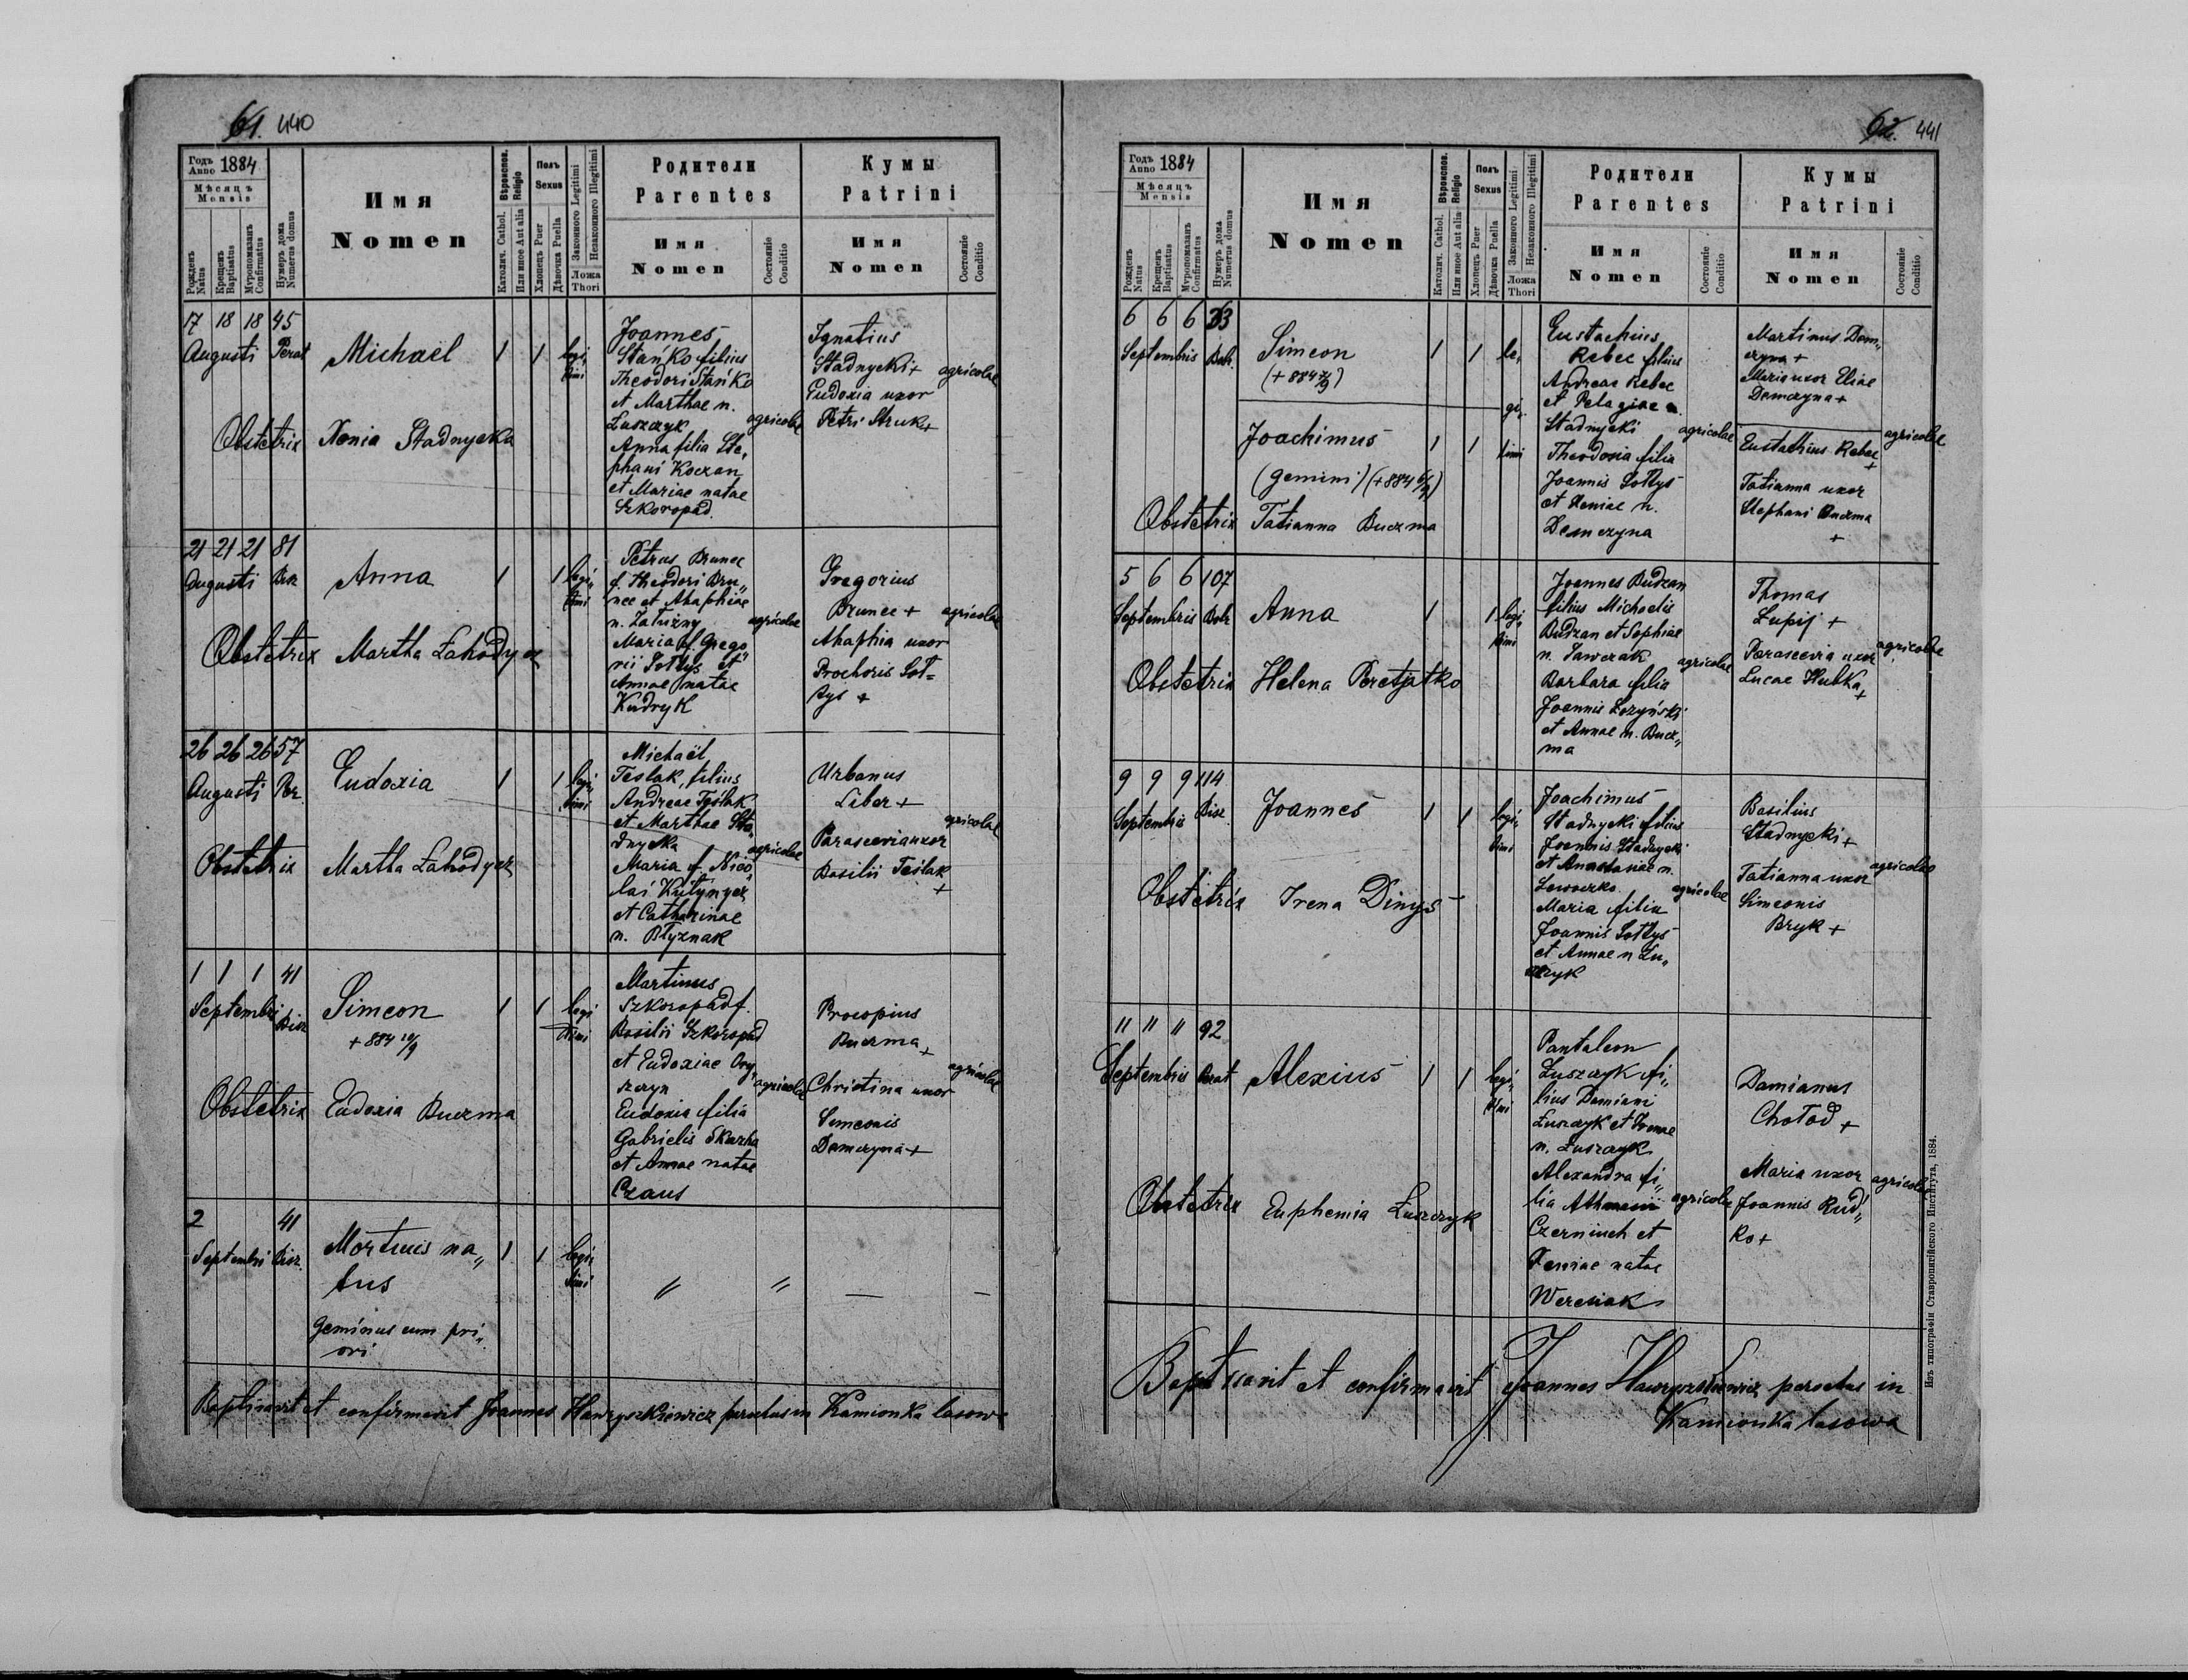 61. 440
Годъ Anno 1884
Мѣсяцъ Mensis
Рожденъ Natus
Крещенъ Baptisatus
Муропомазанъ Confirmatus
Нумеръ дома Numerus domus
Имя Nomen
Вѣроиспов. Religio
Католич. Cathol.
Или иное Aut alia
Полъ Sexus
Хлопецъ Puer
Дѣвочка Puella
Законного Legitimi
Незаконного Illegitimi
Ложа Thori
Родители Parentes
Имя Nomen
Состояніе Conditio
Кумы Patrini
Имя Nomen
Состояніе Conditio
17 18 18 45
Augusti Perat
Michaël
1 1 legi
timi
Joannes
Stańko filius
Theodori Stańko
et Marthae n.
Łuszczyk
Anna filia Ste,
phani Koczan
et Mariae natae
Szkoropad.
agricolae
Ignatius
Stadnycki +
Eudoxia uxor
Petri Struk +
agricolae
Obstetrix Xenia Stadnycka
21 21 21 81
Augusti
Anna
1 1 legi„
timi
Petrus Brunec
f. Theodori Bru„
nec et Ahaphiae
n. Załużny
Maria f. Grego
rii Sołtys et
Annae natae
Kudryk
agricolae
Gregorius
Brunec +
Ahaphia uxor
Prochoris Soł=
tys +
agricolae
Obstetrix Martha Łahodycz
26 26 26 57
Augusti Per.
Eudoxia
1 1 legi„
timi
Michaël
Teslak filius
Andreae Teślak
et Marthae Sta„
dnycka
Maria f. Nico„
lai Kutynycz
et Catharinae
n. Błyznak
agricolae
Urbanus
Liber +
Parascevia uxor
Basilii Teślak
+
agricolae
Obstetrix Martha Łahodycz
1 1 1 41
Septembri Bisz
Simeon
+ 884 10/9
1 1 legi
timi
Martinus
Szkoropad f.
Basilii Szkoropad
et Eudoxiae Ory„
szczyn
Eudoxia filia
Gabrielis Skarha
et Annae natae
Czaus
agricolae
Procopius
Buczma +
Christina uxor
Simeonis
Demczyna +
agricolae
Obstetrix Eudoxia Buczma
2 41
Septembri Bisz.
Mortuus na„
tus
Geminus cum pri„
ori
1 1 legi„
timi
〃 〃 — —
Baptisavit et confirmavit Joannes Hawryszkiewicz parochus in Kamionka lasowa
62. 441
Годъ Anno 1884
Мѣсяцъ Mensis
Рожденъ Natus
Крещенъ Baptisatus
Муропомазанъ Confirmatus
Нумеръ дома Numerus domus
Имя Nomen
Вѣроиспов. Religio
Католич. Cathol.
Или иное Aut alia
Полъ Sexus
Хлопецъ Puer
Дѣвочка Puella
Законного Legitimi
Незаконного Illegitimi
Ложа Thori
Родители Parentes
Имя Nomen
Состояніе Conditio
Кумы Patrini
Имя Nomen
Состояніе Conditio
6 6 6 33
Septembris
Simeon
(+ 884 7/9)
1 1 le„
gi„
Joachimus
(gemini) (+ 884 6/9)
1 1 timi
Eustachius
Rebec filius
Andreae Rebec
et Pelagiae n.
Stadnycki
Theodosia filia
Joannis Sołtys
et Xeniae n.
Demczyna
agricolae
Martinus Dem„
czyna +
Maria uxor Eliae
Demczyna +
Eustachius Rebec
+
Tatianna uxor
Stephani Buczma
+
agricolae
Obstetrix Tatianna Buczma
5 6 6 107
Septembris Bob.
Anna
1 1 legi„
timi
Joannes Budzan
filius Michaelis
Budzan et Sophiae
n. Sawczak
Barbara filia
Joannis Łozyński
et Annae n. Bucz„
ma
agricolae
Thomas
Łupij +
Parascevia uxor
Lucae Hubka +
agricolae
Obstetrix Helena Peretjatko
9 9 9 114
Septembris Bisz.
Joannes
1 1 legi„
timi
Joachimus
Stadnycki filius
Joannis Stadnycki
et Anastasiae n.
Sawoczko
Maria filia
Joannis Sołtys
et Annae n. Łu„
szczyk
agricolae
Basilius
Stadnycki +
Tatianna uxor
Simeonis
Bryk +
agricolae
Obstetrix Irena Dinys
11 11 11 92
Septembris Perat
Alexius
1 1 legi„
timi
Pantaleon
Łuszczyk fi„
lius Damiani
Łuszczyk et Irenae
n. Łuszczyk
Alexandra fi„
lia
Czerniuch et
Xeniae natae
Weresiak
agricolae
Damianus
Chołod +
Maria uxor
Joannis Rud„
ko +
agricolae
Obstetrix Euphemia Łuszczyk
Baptisavit et confirmavit Joannes Hawryszkiewicz parochus in
Kamionka lasowa
Изъ типографіи Ставропигійского Института, 1884.